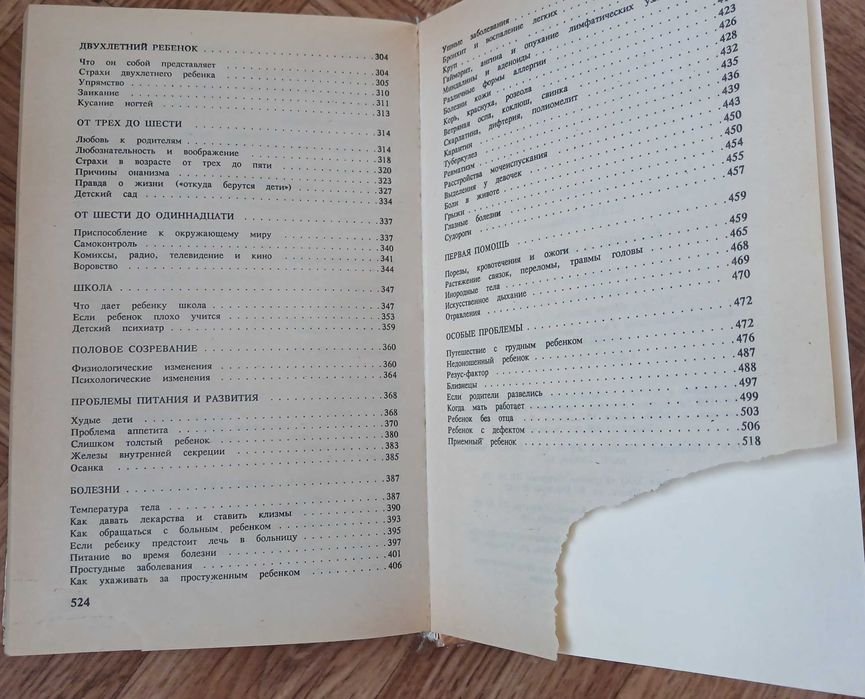 ДВУХЛЕТНИЙ РЕБЕНОК 304
Что он собой представляет 304
Страхи двухлетнего ребенка 305
Упрямство 310
Заикание 311
Кусание ногтей 313
ОТ ТРЕХ ДО ШЕСТИ 314
Любовь к родителям 314
Любознательность и воображение 318
Страхи в возрасте от трех до пяти 320
Причины онанизма 323
Правда о жизни («откуда берутся дети») 327
Детский сад 334
ОТ ШЕСТИ ДО ОДИННАДЦАТИ 337
Приспособление к окружающему миру 337
Самоконтроль 340
Комиксы, радио, телевидение и кино 341
Воровство 344
ШКОЛА 347
Что дает ребенку школа 347
Если ребенок плохо учится 353
Детский психиатр 359
ПОЛОВОЕ СОЗРЕВАНИЕ 360
Физиологические изменения 360
Психологические изменения 364
ПРОБЛЕМЫ ПИТАНИЯ И РАЗВИТИЯ 368
Худые дети 368
Проблема аппетита 370
Слишком толстый ребенок 380
Железы внутренней секреции 383
Осанка 385
БОЛЕЗНИ 387
Температура тела 387
Как давать лекарства и ставить клизмы 390
Как обращаться с больным ребенком 393
Если ребенку предстоит лечь в больницу 395
Питание во время болезни 397
Простудные заболевания 401
Как ухаживать за простуженным ребенком 406
524
Ушные заболевания
Бронхит и воспаление легких
Круп
Гайморит, ангина и опухание лимфатических
Миндалины и аденоиды
Различные формы аллергии
Болезни кожи 423
Корь, краснуха, розеола 426
Ветряная оспа, коклюш, свинка 428
Скарлатина, дифтерия, полиомелит 432
Карантин 435
Туберкулез 436
Ревматизм 439
Расстройства мочеиспускания 443
Выделения у девочек 450
Боли в животе 450
Грыжи 454
Глазные болезни 455
Судороги 457
ПЕРВАЯ ПОМОЩЬ 459
Порезы, кровотечения и ожоги 459
Растяжение связок, переломы, травмы головы 465
Инородные тела 468
Искусственное дыхание 469
Отравления 470
ОСОБЫЕ ПРОБЛЕМЫ 472
Путешествие с грудным ребенком 472
Недоношенный ребенок 476
Резус-фактор 487
Близнецы 488
Если родители развелись 497
Когда мать работает 499
Ребенок без отца 503
Ребенок с дефектом 506
Приемный ребенок 518